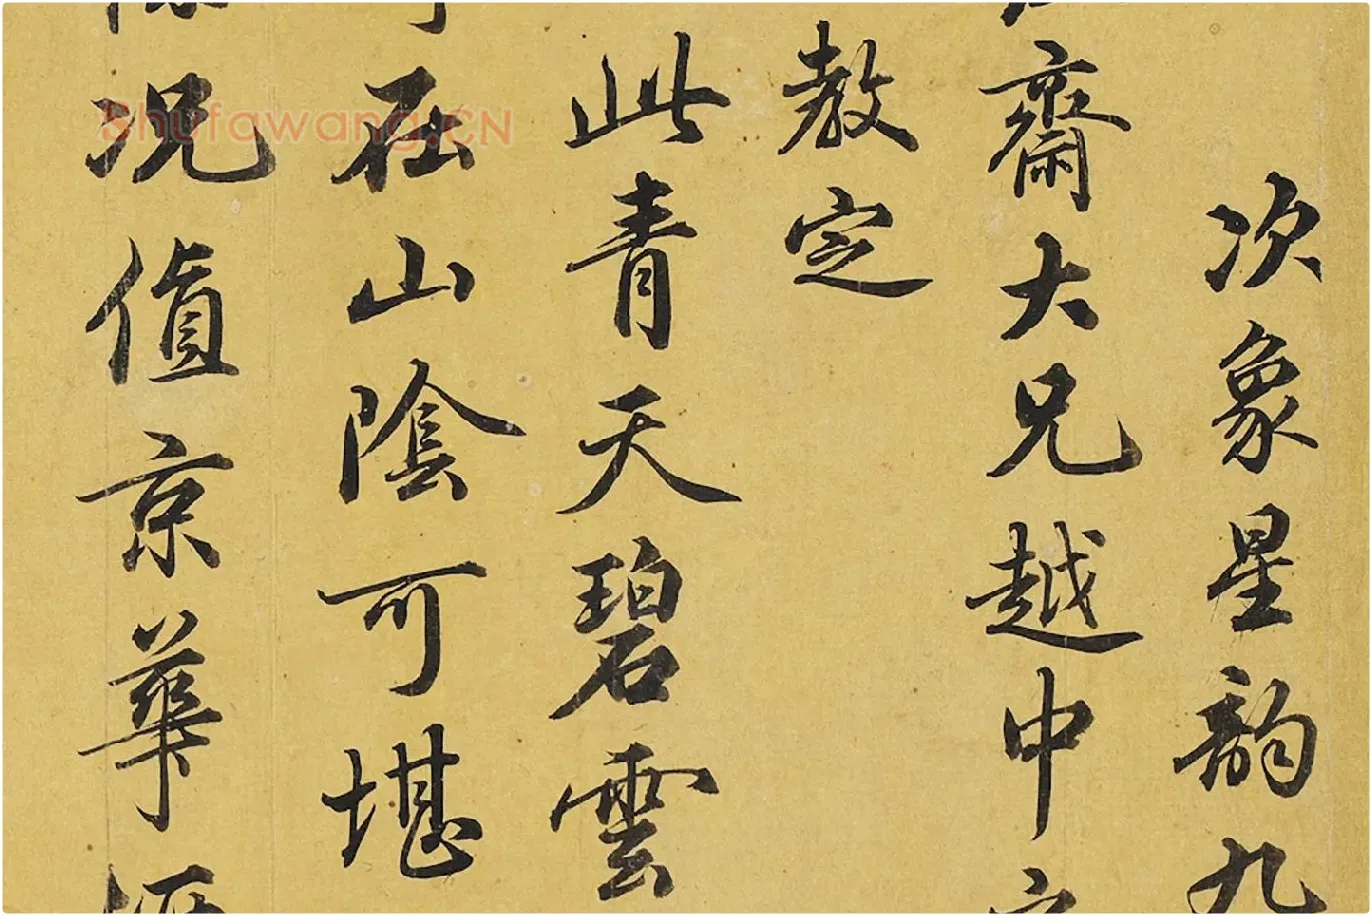 次象星韵九
齋大兄越中
教定
此青天碧雲
在山陰可堪
况值京華
Shufawang.CN